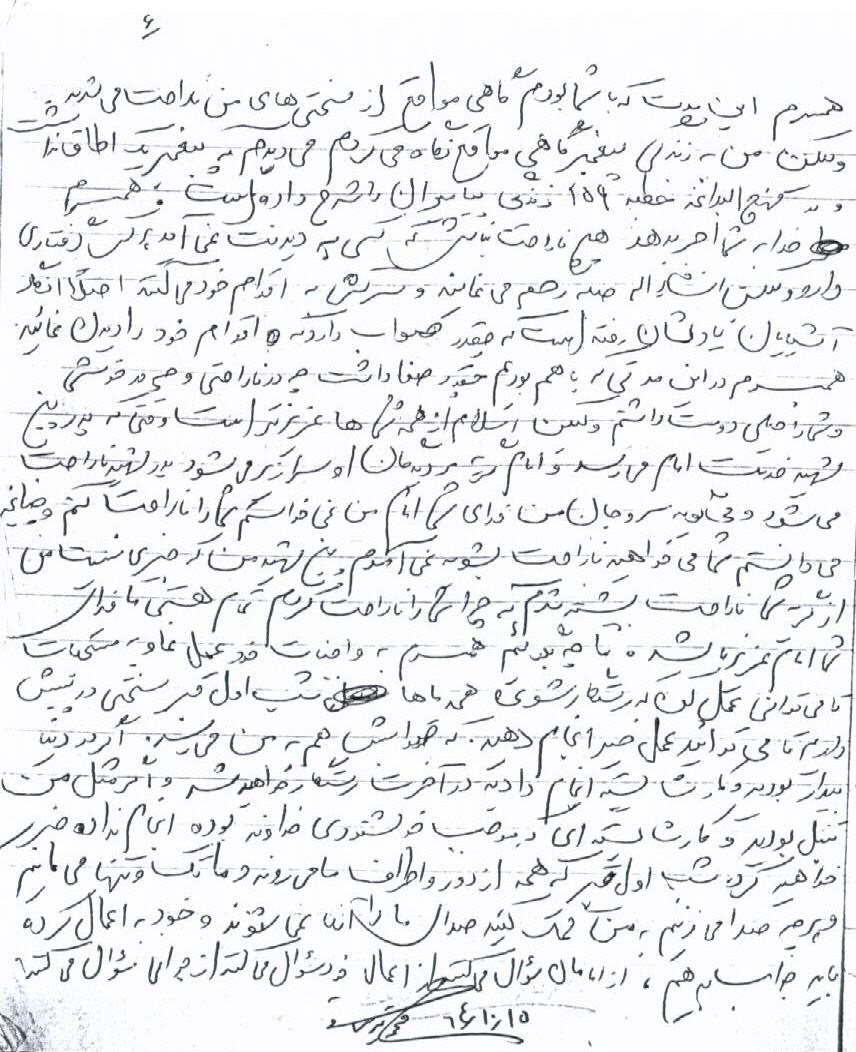 ۶
همسرم این مدت که با شما بودم گاهی مواقع از سختی‌های من ناراحت می‌شدید
ولیکن من به زندگی پیغمبر گاهی مواقع نگاه می‌کردم می‌دیدم که پیغمبر یک اطاق
و در نهج البلاغه خطبه ۱۵۹ زندگی پیامبران را شرح داده است. همسرم
خدا به شما اجر بدهد هم ناراحت نباش که کسی به دیدنت نمی‌آمد هر کس گرفتاری
دارد ولیکن انشاء اله صله رحم می‌نمایند و سرکشی به اقوام خود می‌کنند اصلاً انگار
یادشان رفته است که چقدر ثواب دارد که اقوام خود را دیدن نمائید
همسرم در این مدتی که با هم بودیم چقدر صفا داشت چه در ناراحتی و چه در خوشی
و شما را خیلی دوست داشتم ولیکن اسلام از همه شما ها عزیزتر است وقتی که پدر پنج
شهید خدمت امام می‌رسد و امام اشک از چشمان او سرازیر می‌شود پدر شهید ناراحت
می‌شود و می‌گوید سر و جان من فدای شما امام من نمی‌خواستم شما را ناراحت کنم چنانچه
می‌دانستم شما می‌خواهید ناراحت بشوید نمی‌آمدم پنج شهید من که چیزی نیست من
از گریه شما ناراحت بیشتر شدم که چرا شما را ناراحت کردم تمام هستی ما فدای
شما امام عزیز باشد ما چه بودیم همسرم به واجبات خود عمل نما و به مستحبات
تا می‌توانی عمل کن که رستگار شوی همه ماها شب اول قبر سختی در پیش
داریم تا می‌توانید عمل خیر انجام دهید. که ثوابش هم به من می‌رسد. اگر در دنیا
بیدار بودید و کار شایسته انجام دادید در آخرت رستگار خواهید شد و اگر مثل من
تنبل بودید و کار شایسته‌ای که موجب خوشنودی خداوند بوده انجام نداده ضرر
خواهید کرد. شب اول قبر که همه از دور و اطراف ما می‌روند و ما تک و تنها می‌مانیم
هر چه صدا می‌زنیم به من کمک کنید صدای ما را آنها نمی‌شنوند و خود به اعمال کرده
باید جواب بدهیم، از امامان سؤال می‌کنند از اعمال خود سؤال می‌کنند از جوانی سؤال می‌کنند
۶۴/۱۰/۱۵